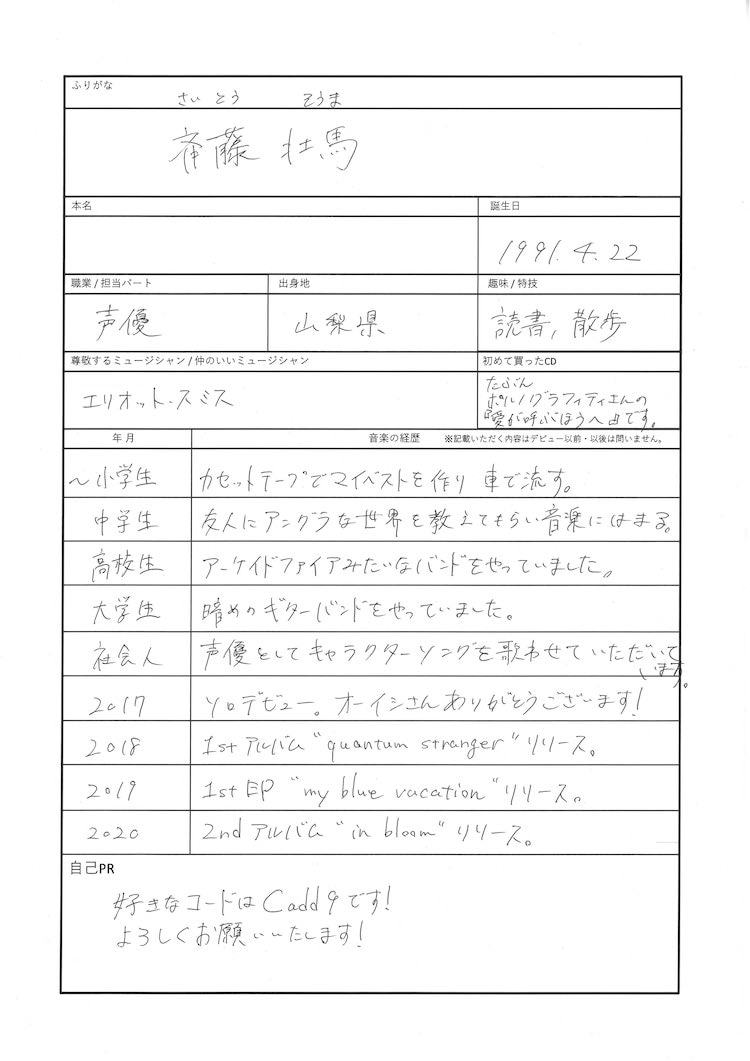 ふりがな
さいとう そうま
斉藤 壮馬
本名 誕生日
1991. 4. 22
職業 / 担当パート 出身地 趣味 / 特技
声優 山梨県 読書, 散歩
尊敬するミュージシャン / 仲のいいミュージシャン 初めて買ったCD
エリオット・スミス
たぶん
ポルノグラフィティさんの
『愛が呼ぶほうへ』です。
年 月 音楽の経歴 ※記載いただく内容はデビュー以前・以後は問いません。
〜小学生 カセットテープでマイベストを作り 車で流す。
中学生 友人にアングラな世界を教えてもらい音楽にはまる。
高校生 アーケイドファイアみたいなバンドをやっていました。
大学生 暗めのギターバンドをやっていました。
社会人 声優としてキャラクターソングを歌わせていただいて
います。
2017 ソロデビュー。オーイシさんありがとうございます!
2018 1stアルバム "quantum stranger" リリース。
2019 1st EP "my blue vacation" リリース。
2020 2nd アルバム "in bloom" リリース。
自己PR
好きなコードはCadd9です!
よろしくお願いいたします!